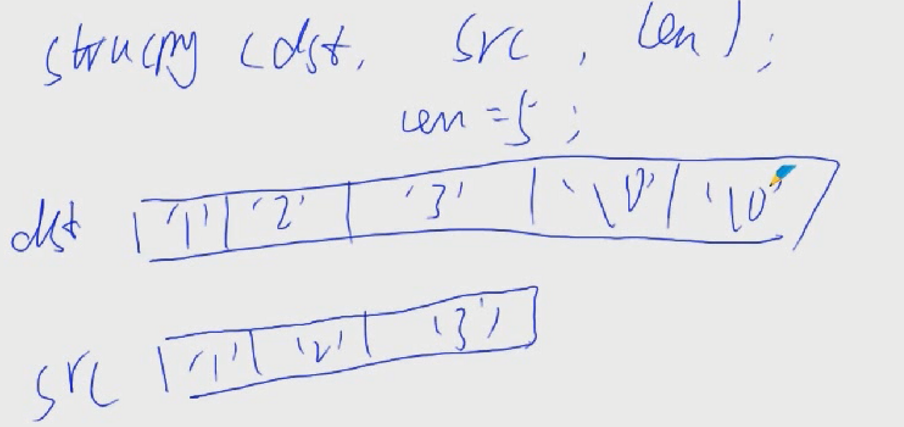 strncpy (dst, src, len);
len = 5;
dst '1' '2' '3' '\0' '\0'
src '1' '2' '3'